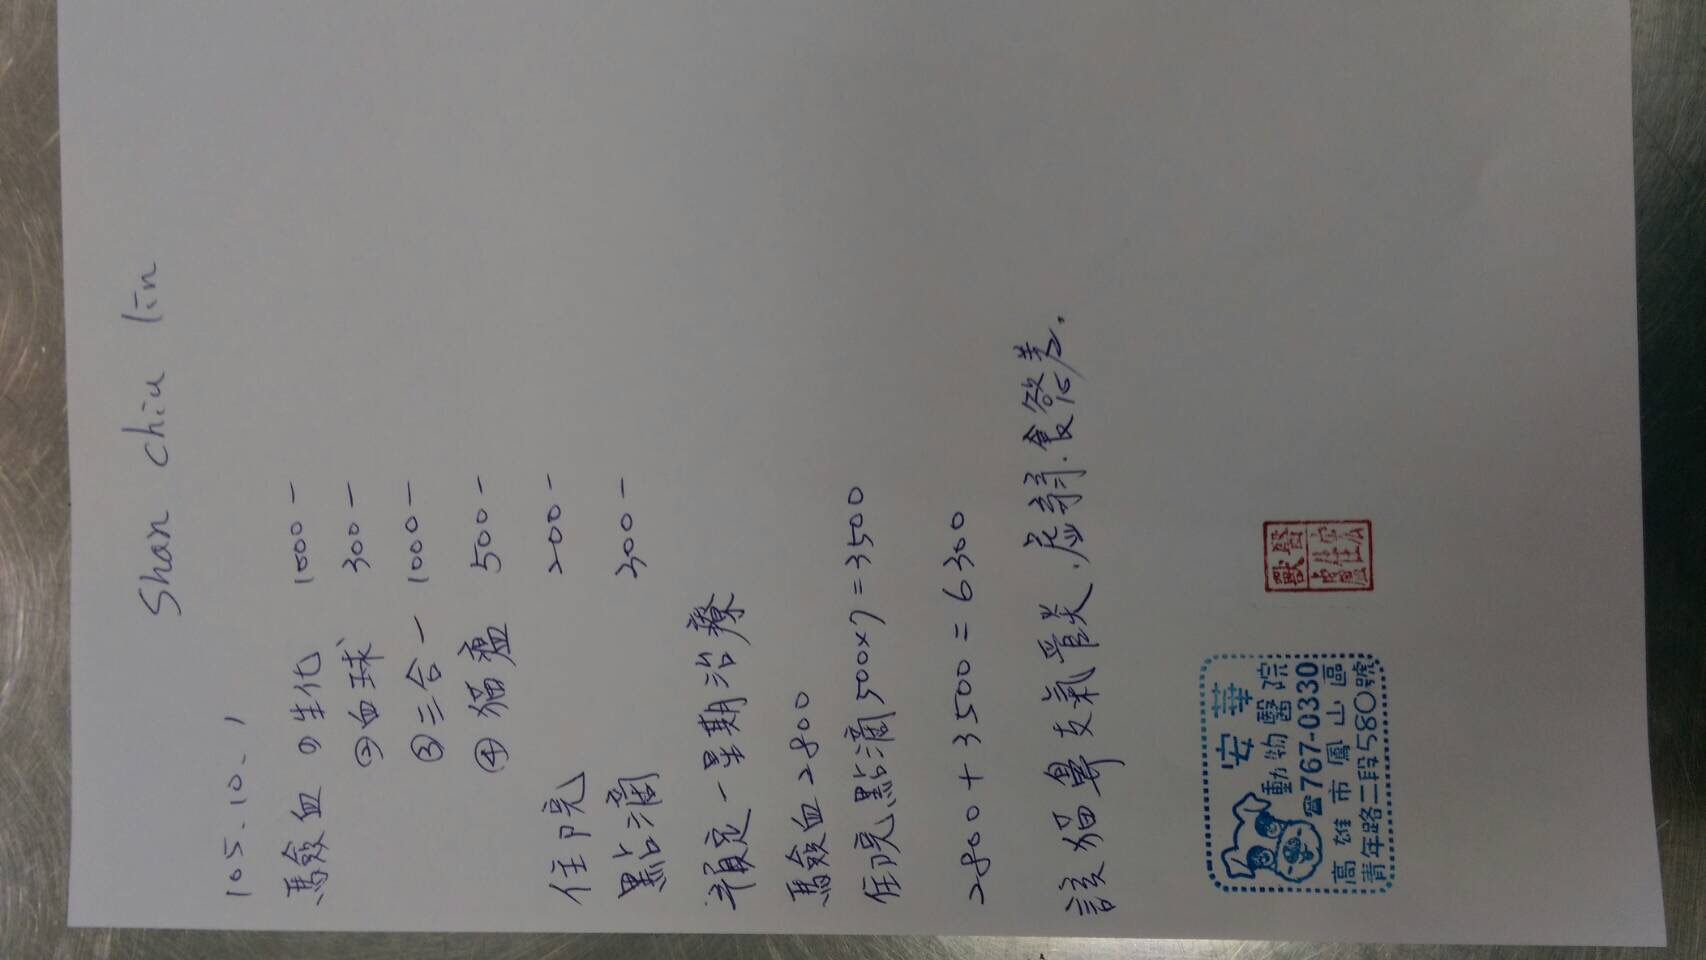 Shan chiu lin
105.10.1
驗血 ①生化 1000-
②血球 300-
③三合一 1000-
④貓瘟 500-
住院 200-
點滴 300-
預定一星期治療
驗血2800
住院點滴500×7=3500
2800+3500=6300
該貓鼻支氣管炎.虛弱.食慾差.
安華
動物醫院
☎767-0330
高雄市鳳山區
青年路二段580號
獸醫